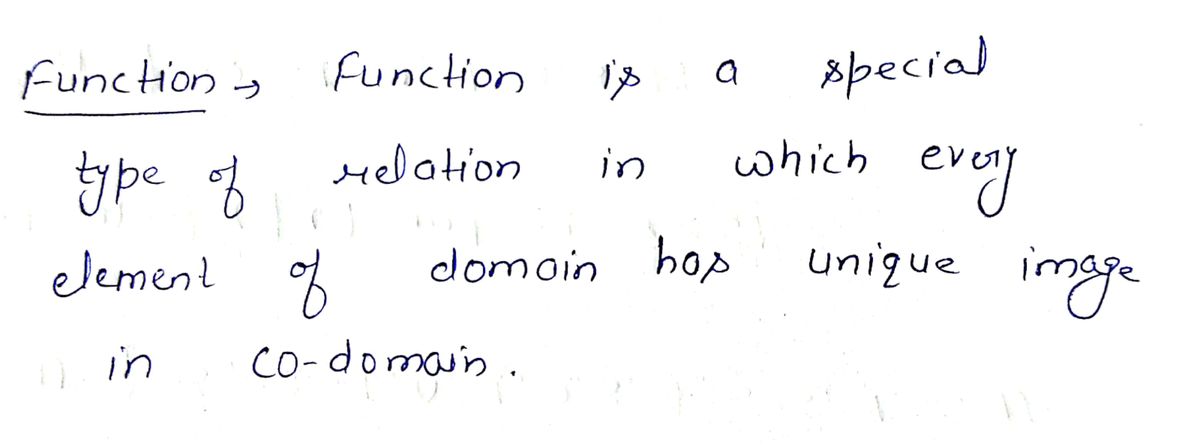 Function → Function is a special
type of relation in which every
element of domain has unique image
in co-domain.